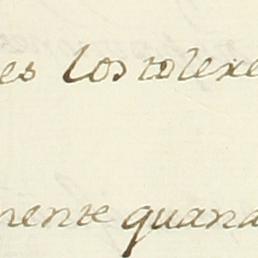 es los tolere
mente quand